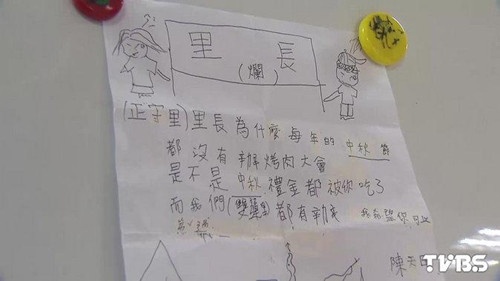 里 長
(爛)
(正守里)里長為什麼每年的中秋節
都沒有辦烤肉大會
是不是中秋禮金都被你吃了
而我們(雙龍里)都有
陳
TVBS